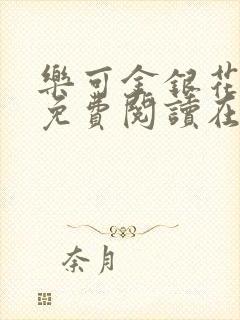 樂可金銀花
免費閱讀在
奈月